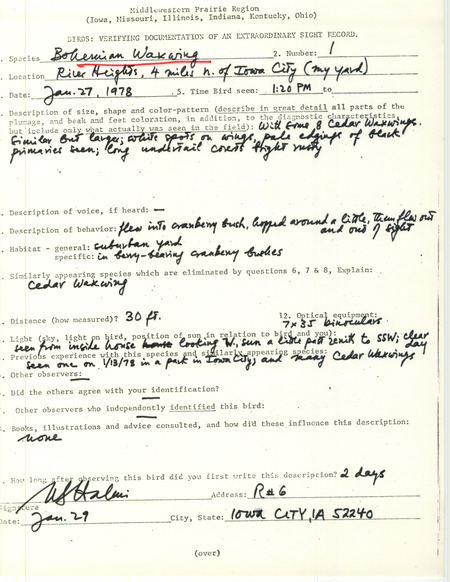 Middlewestern Prairie Region
(Iowa, Missouri, Illinois, Indiana, Kentucky, Ohio)
BIRDS: VERIFYING DOCUMENTATION OF AN EXTRAORDINARY SIGHT RECORD.
. Species Bohemian Waxwing 2. Number: 1
. Location River Heights, 4 miles n. of Iowa City (my yard)
. Date: Jan. 27, 1978 . 5. Time Bird seen: 1:20 PM to
. Description of size, shape and color-pattern (describe in great detail all parts of the
plumage, and beak and feet coloration, in addition, to the diagnostic characteristics,
but include only what actually was seen in the field): With some 8 Cedar Waxwings.
Similar but larger; white spots on wings, pale edgings of black
primaries seen; long undertail coverts bright rusty
. Description of voice, if heard: —
. Description of behavior: flew into cranberry bush, hopped around a little, then flew out
and out of sight
. Habitat - general: suburban yard
specific: in berry-bearing cranberry bushes
. Similarly appearing species which are eliminated by questions 6, 7 & 8, Explain:
Cedar Waxwing
. Distance (how measured)? 30 ft. 12. Optical equipment:
7x35 binoculars
. Light (sky, light on bird, position of sun in relation to bird and you):
seen from inside house looking W, sun a little past zenith to SSW; clear day
. Previous experience with this species and similarly appearing species:
seen one on 1/13/78 in a park in Iowa City, and many Cedar Waxwings
. Other observers:
. Did the others agree with your identification?
. Other observers who independently identified this bird:
. Books, illustrations and advice consulted, and how did these influence this description:
none
. How long after observing this bird did you first write this description? 2 days
NSHalmi Address: R#6
Signature
Date: Jan. 29 City, State: Iowa City, IA 52240
(over)